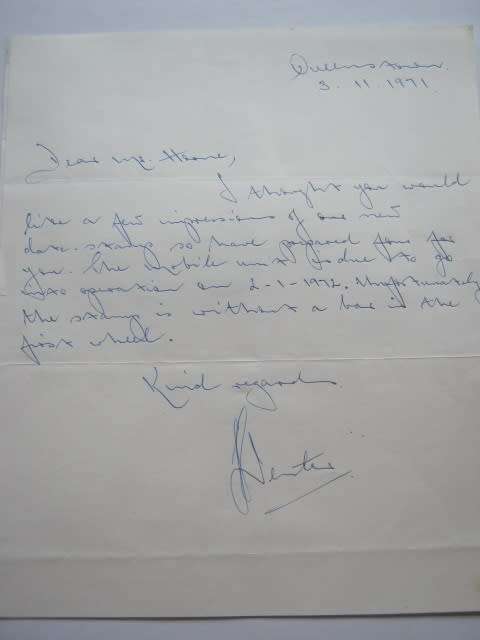 Queenstown.
3. 11. 1971.
Dear Mr. Hoare,
I thought you would
like a few impressions of our new
date-stamp so have prepared four for
you. The mobile unit is due to go
into operation on 2-1-1972. Unfortunately
the stamp is without a bar in the
first wheel.
Kind regards.